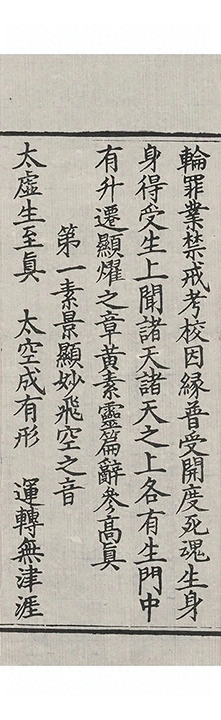 輪罪業禁戒考校因緣普受開度死魂生身
身得受生上聞諸天諸天之上各有生門中
有升遷顯燿之章黃素靈篇辭參高真
第一素景顯妙飛空之音
太虛生至真　太空成有形　運轉無津涯